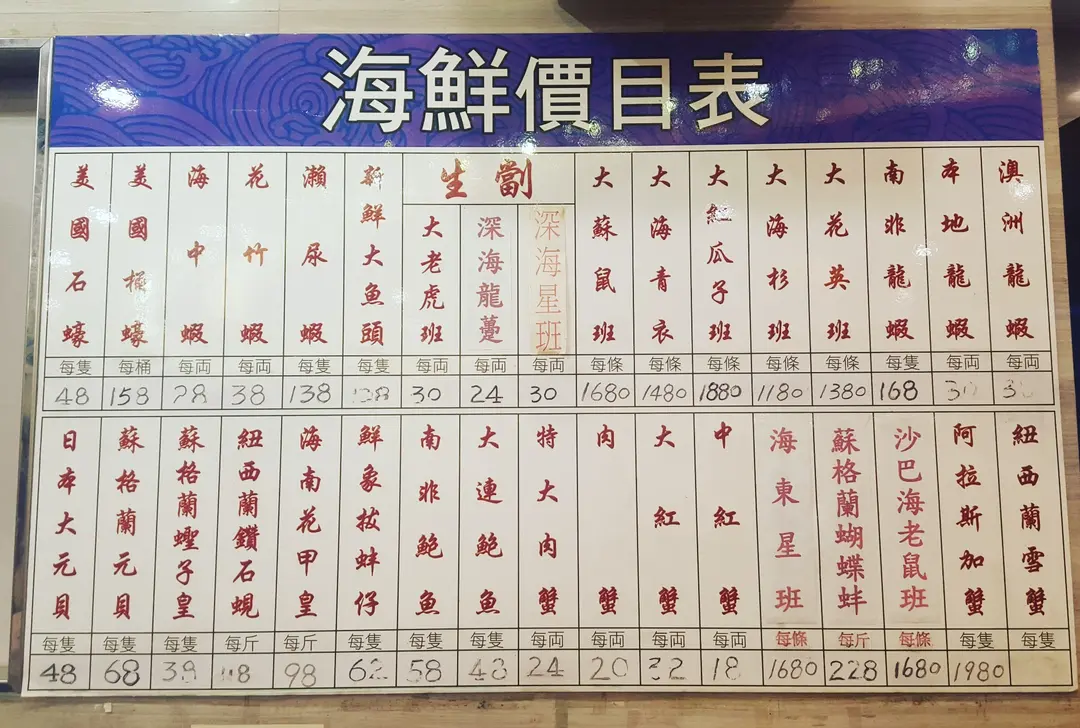 海鮮價目表
美國石蠔
美國桶蠔
海中蝦
花竹蝦
瀨尿蝦
新鮮大魚頭
生劏
大老虎班
深海龍躉
深海星班
大蘇鼠班
大海青衣
大紅瓜子班
大海杉班
大花英班
南非龍蝦
本地龍蝦
澳洲龍蝦
每隻 每桶 每両 每両 每隻 每隻 每両 每両 每両 每條 每條 每條 每條 每條 每隻 每両 每両
48 158 28 38 138 30 24 30 1680 1480 1880 1180 1380 168
日本大元貝
蘇格蘭元貝
蘇格蘭蟶子皇
紐西蘭鑽石蜆
海南花甲皇
鮮象拔蚌仔
南非鮑魚
大連鮑魚
特大肉蟹
肉蟹
大紅蟹
中紅蟹
海東星班
蘇格蘭蝴蝶蚌
沙巴海老鼠班
阿拉斯加蟹
紐西蘭雪蟹
每隻 每隻 每隻 每斤 每斤 每隻 每隻 每隻 每両 每両 每両 每両 每條 每斤 每條 每隻 每隻
48 68 38 98 62 58 48 24 20 32 18 1680 228 1680 1980